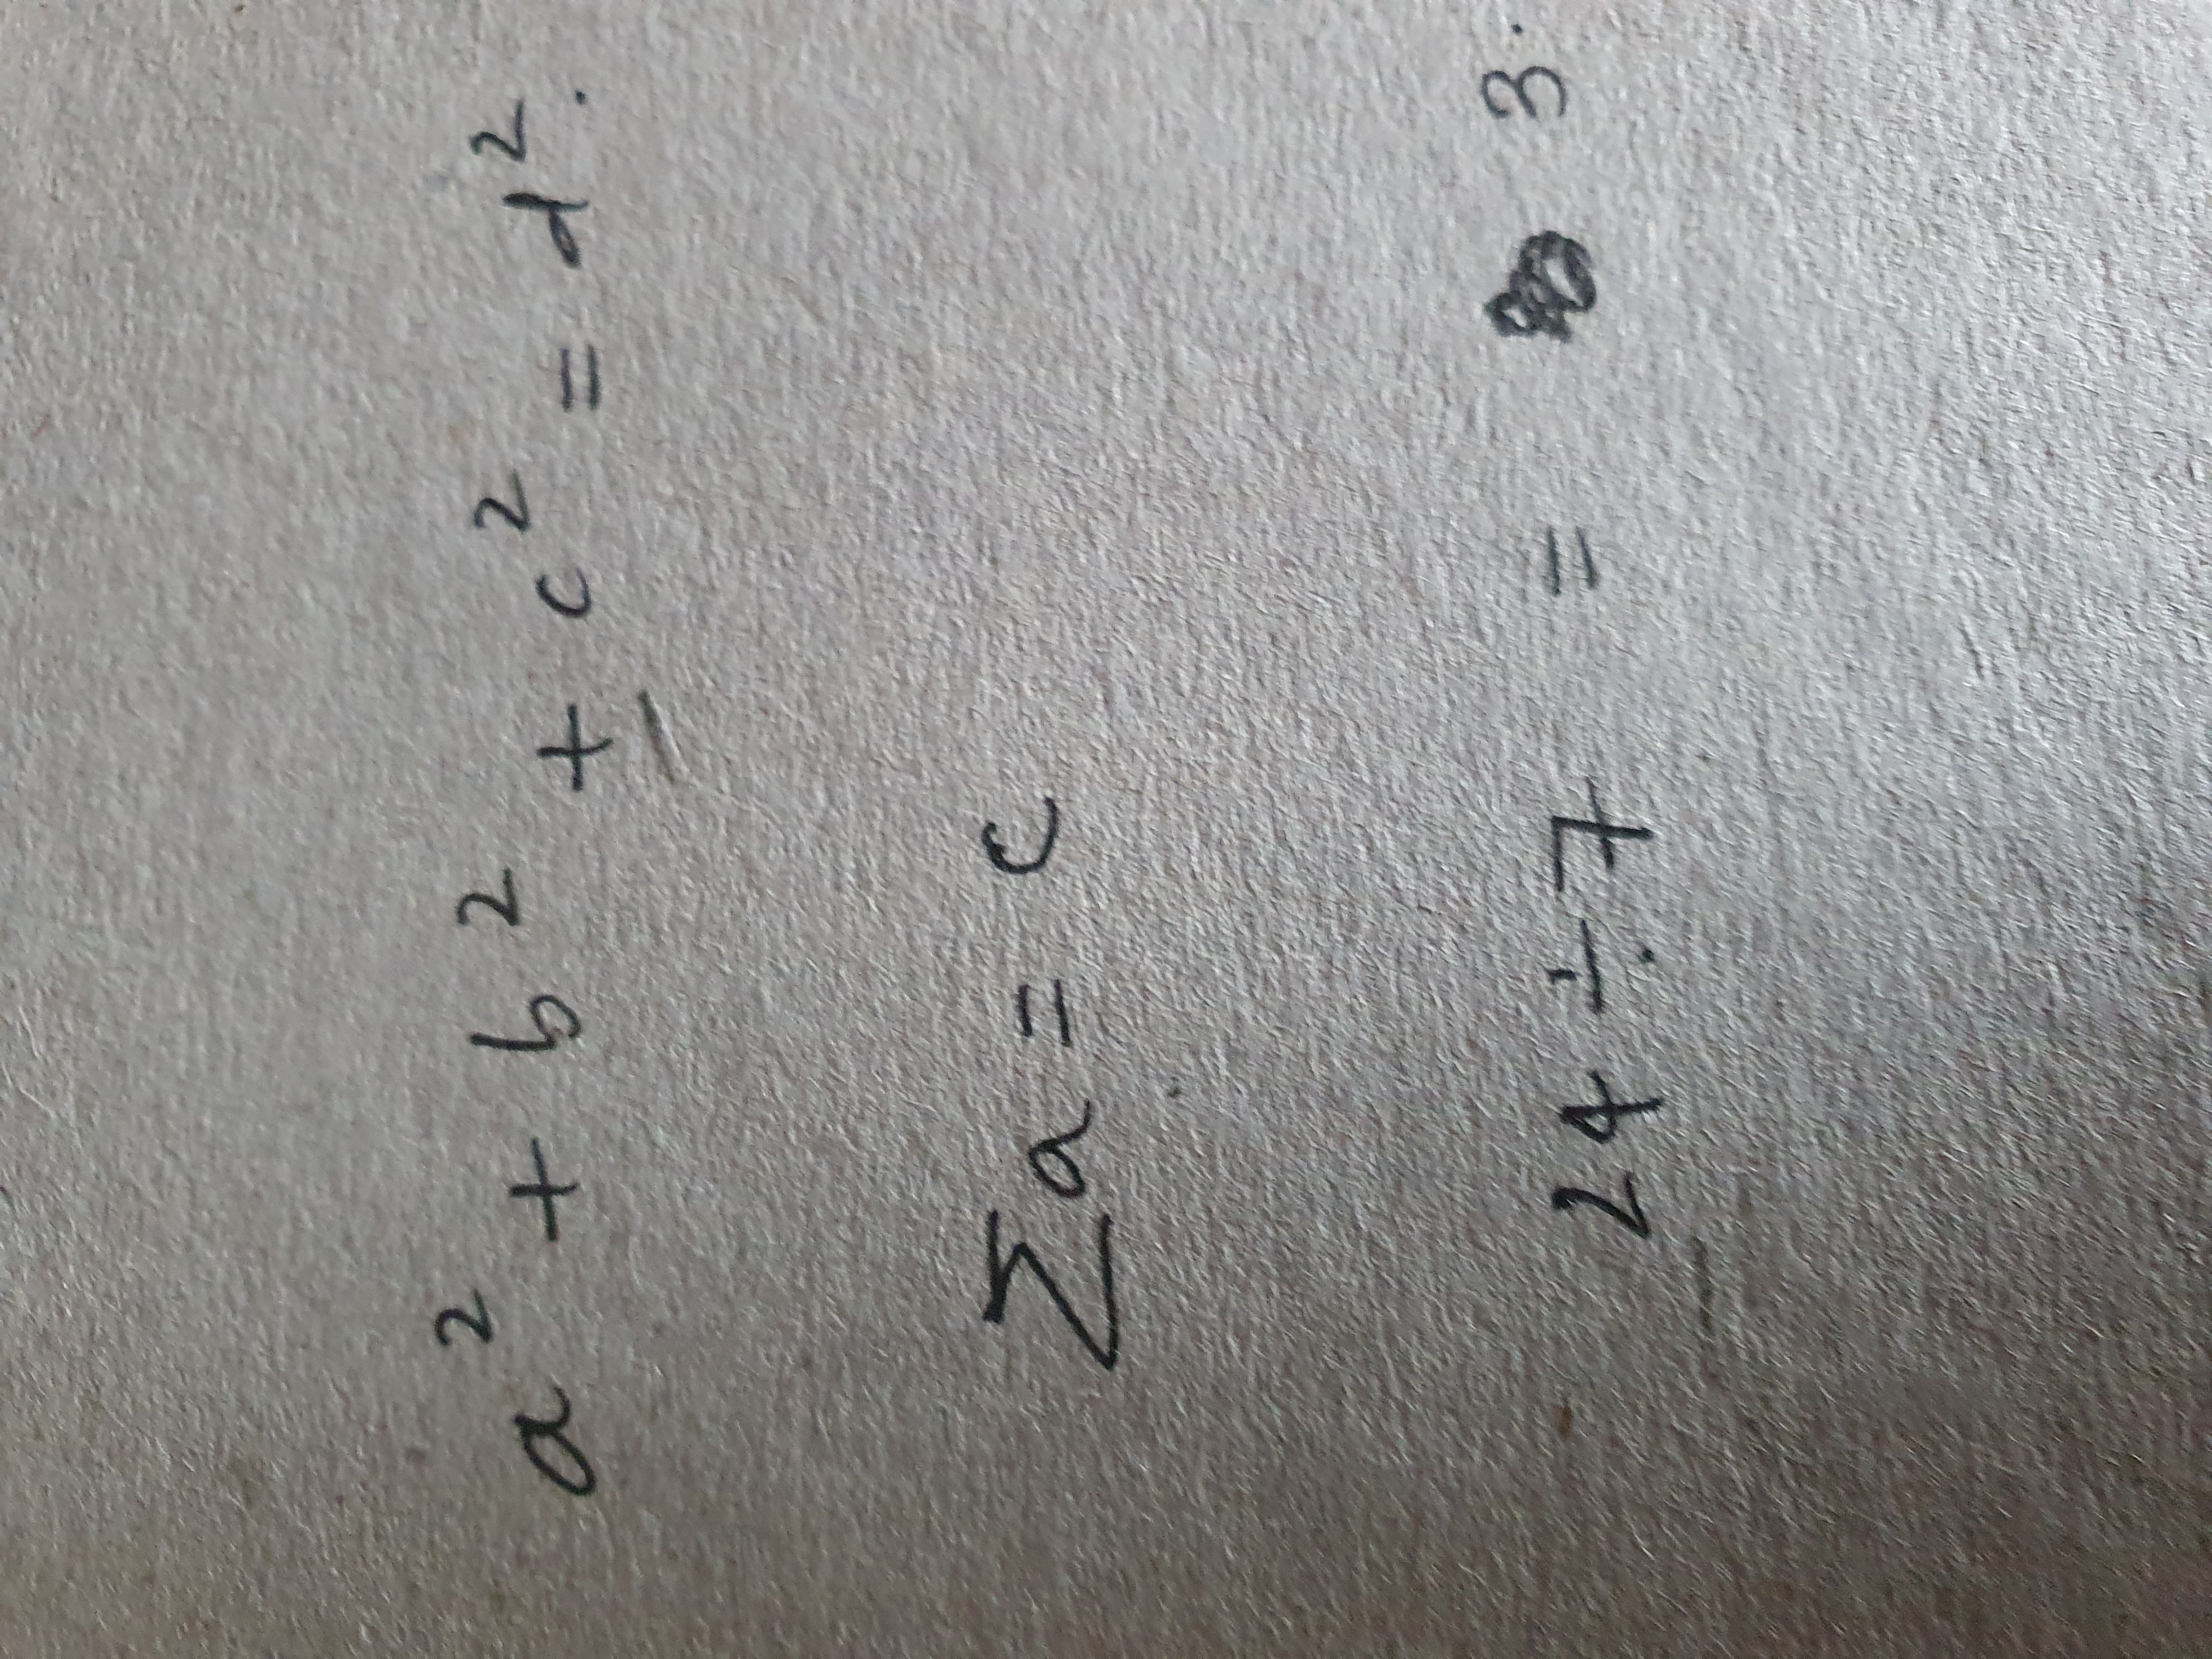 a² + b² + c² = d².
∑a = c
24 ÷ 7 = 3.